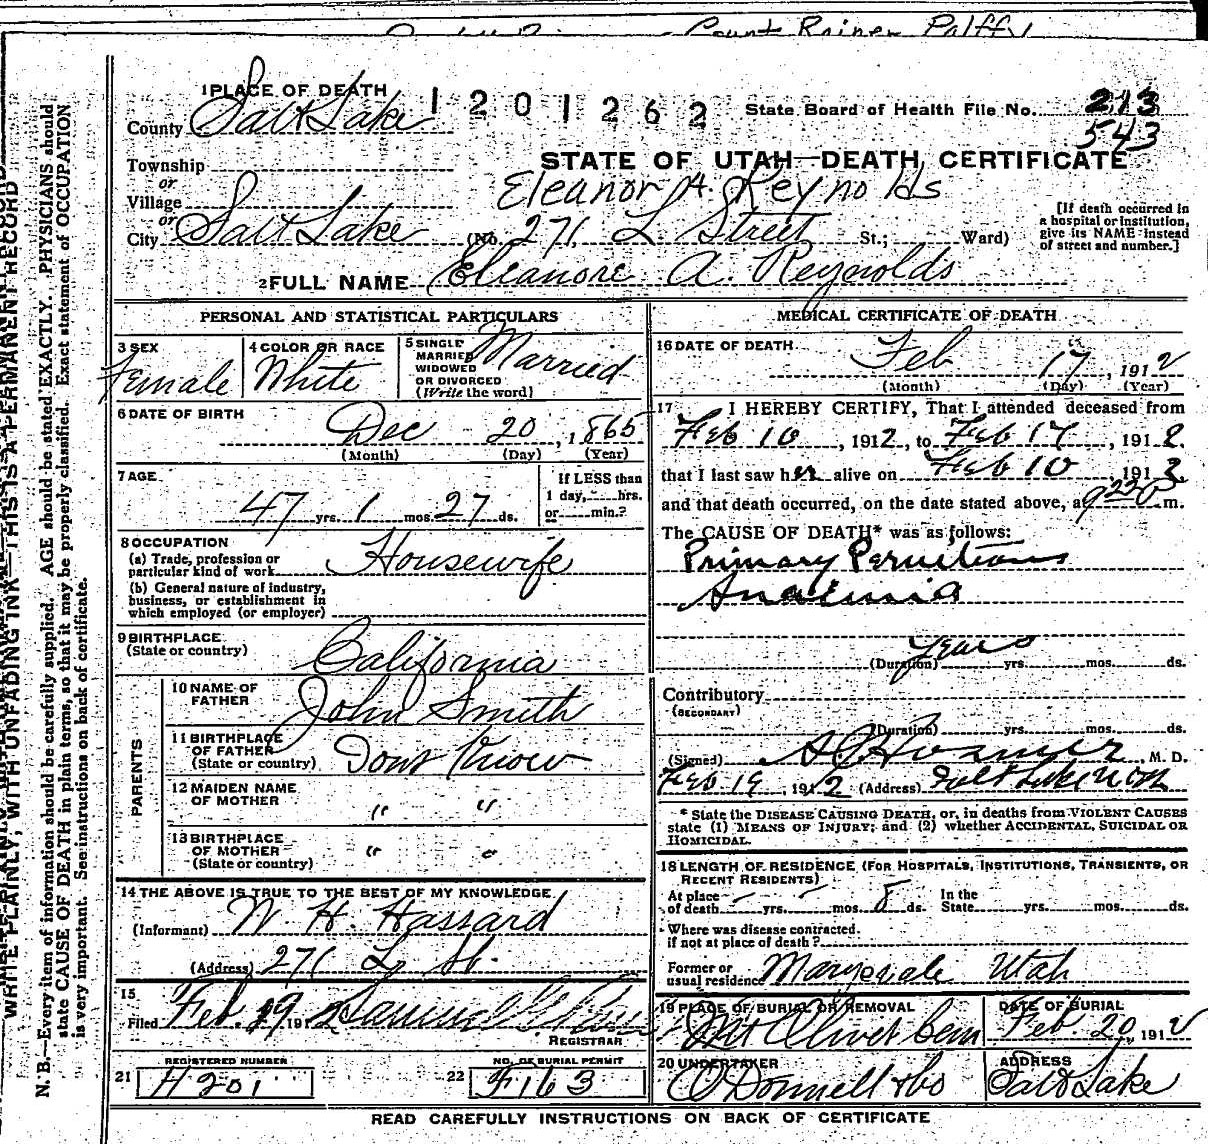 Count Rainer Palffy
1 PLACE OF DEATH
1201262
State Board of Health File No. 213
543
County Salt Lake
STATE OF UTAH—DEATH CERTIFICATE
Township
or
Village
or
Eleanor A. Reynolds
City Salt Lake (No. 271 L Street St.; Ward)
[If death occurred in
a hospital or institution,
give its NAME instead
of street and number.]
2 FULL NAME Eleanore A. Reynolds
PERSONAL AND STATISTICAL PARTICULARS
3 SEX
Female
4 COLOR OR RACE
White
5 SINGLE
MARRIED
WIDOWED
OR DIVORCED
(Write the word)
Married
6 DATE OF BIRTH
Dec 20, 1865
(Month) (Day) (Year)
7 AGE
47 yrs. 1 mos. 27 ds.
If LESS than
1 day, hrs.
or min.?
8 OCCUPATION
(a) Trade, profession or
particular kind of work Housewife
(b) General nature of industry,
business, or establishment in
which employed (or employer)
9 BIRTHPLACE
(State or country) California
PARENTS
10 NAME OF
FATHER John Smith
11 BIRTHPLACE
OF FATHER
(State or country) Dont Know
12 MAIDEN NAME
OF MOTHER " "
13 BIRTHPLACE
OF MOTHER
(State or country) " "
14 THE ABOVE IS TRUE TO THE BEST OF MY KNOWLEDGE
(Informant) W. H. Hassard
(Address) 271 L St.
15
Filed Feb. 19 1912 Samuel G.
REGISTRAR
REGISTERED NUMBER
21 H201
NO. OF BURIAL PERMIT
22 F163
MEDICAL CERTIFICATE OF DEATH
16 DATE OF DEATH
Feb 17, 1912
(Month) (Day) (Year)
17 I HEREBY CERTIFY, That I attended deceased from
Feb 10, 1912, to Feb 17, 1912.
that I last saw her alive on Feb 10 1912
and that death occurred, on the date stated above, at 9 m.
The CAUSE OF DEATH* was as follows:
Primary Pernitious
Anaemia
Years
(Duration) yrs. mos. ds.
Contributory
(SECONDARY)
(Duration) yrs. mos. ds.
(Signed) Hosmer, M. D.
Feb 19, 1912 (Address) Salt Lake Utah
* State the DISEASE CAUSING DEATH, or, in deaths from VIOLENT CAUSES
state (1) MEANS OF INJURY; and (2) whether ACCIDENTAL, SUICIDAL OR
HOMICIDAL.
18 LENGTH OF RESIDENCE (FOR HOSPITALS, INSTITUTIONS, TRANSIENTS, OR
RECENT RESIDENTS)
At place
of death - yrs. - mos. 8 ds.
In the
State yrs. mos. ds.
Where was disease contracted.
if not at place of death?
Former or
usual residence Marysvale Utah
19 PLACE OF BURIAL OR REMOVAL
Mt Olivet Cem
DATE OF BURIAL
Feb 20, 1912
20 UNDERTAKER
O'Donnell & Co
ADDRESS
Salt Lake
READ CAREFULLY INSTRUCTIONS ON BACK OF CERTIFICATE
WRITE PLAINLY, WITH UNFADING INK—THIS IS A PERMANENT RECORD
N. B.—Every item of information should be carefully supplied. AGE should be stated EXACTLY. PHYSICIANS should
state CAUSE OF DEATH in plain terms, so that it may be properly classified. Exact statement of OCCUPATION
is very important. See instructions on back of certificate.